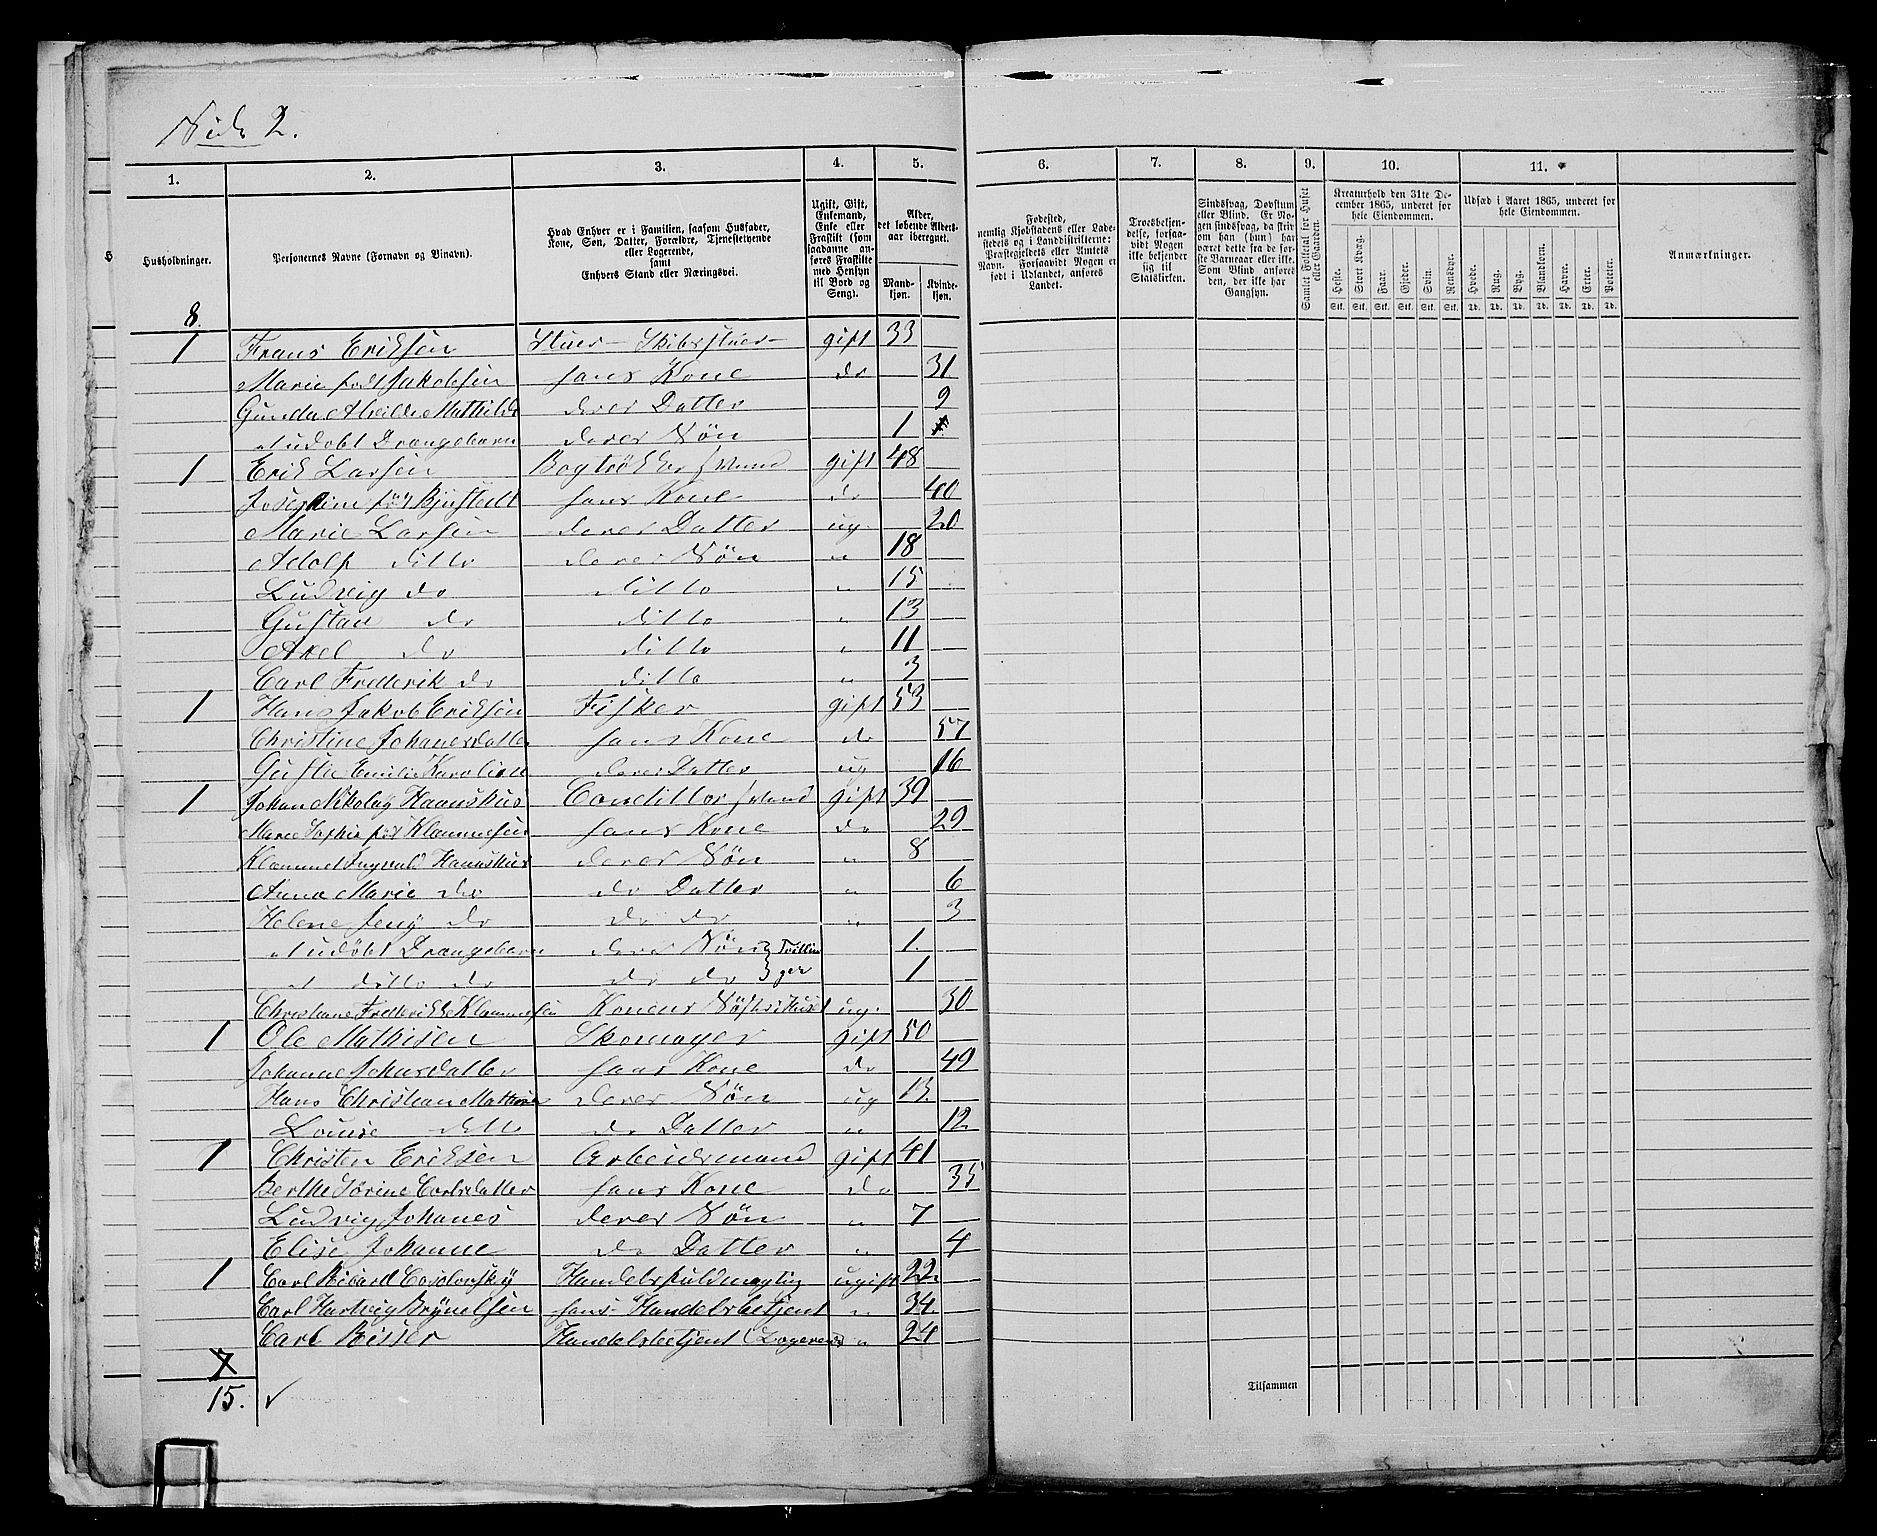 Side 2.
1. 2. 3. 4. 5. 6. 7. 8. 9. 10. 11.
Husholdninger.
Personernes Navne (Fornavn og Binavn).
Hvad Enhver er i Familien, saasom Husfader,
Kone, Søn, Datter, Forældre, Tjenestetyende
eller Logerende,
samt
Enhvers Stand eller Næringsvei.
Ugift, Gift,
Enkemand,
Enke eller
Fraskilt (som
saadanne an-
føres Fraskilte
med Hensyn
til Bord og
Seng).
Alder,
det løbende Alders-
aar iberegnet.
Mand-
kjøn.
Kvinde-
kjøn.
Fødested,
nemlig Kjøbstadens eller Lade-
stedets og i Landdistrikterne:
Præstegjeldets eller Amtets
Navn. Forsaavidt Nogen er
født i Udlandet, anføres
Landet.
Troesbekjen-
delse, forsaa-
vidt Nogen
ikke bekjender
sig til
Statskirken.
Sindssvag, Døvstum
eller Blind. Er No-
gen sindssvag, da skriv
om han (hun) har
været dette fra de før-
ste Barneaar eller ikke.
Som Blind anføres
den, der ikke har
Gangsyn.
Samlet Folketal for Huset
eller Gaarden.
Kreaturhold den 31te De-
cember 1865, underet for
hele Eiendommen.
Heste. Stort Kvæg. Faar. Gjeder. Svin. Rensdyr.
Stk. Stk. Stk. Stk. Stk. Stk.
Udsæd i Aaret 1865, underet for
hele Eiendommen.
Hvede. Rug. Byg. Blandkorn. Havre. Erter. Poteter.
Td. Td. Td. Td. Td. Td. Td.
Anmærkninger.
8.
1 Frans Eriksen Stuer - Skibsstuer gift 33
Marie født Jakobsen hans Kone do 31
Gunda Mathilde deres Datter 9
et udøbt Drengebarn deres Søn 1
1 Erik Larsen Bogtrøkker gift 48
Josephine hans Kone do 40
Marie Larsen deres Datter ug. 20
Adolf ditto deres Søn " 18
Ludvig do ditto " 15
Gustav do ditto " 13
Axel do ditto " 11
Carl Frederik do ditto " 3
1 Hans Jakob Eriksen Fisker gift 53
Christine Johanesdatter hans Kone do 57
Emilie Karoline deres Datter ug 16
1 Johan Nikolay Conditter gift 39
Marie Sophie hans Kone do 29
deres Søn " 8
Anna Marie do do Datter " 6
Helene Jeny do do do " 3
et udøbt Drengebarn deres Søn } Tvillin 1
et ditto do do do } ger 1
Christiane Frederikke Konens ug. 30
1 Ole Mathisen Skomager gift 50
Johanne hans Kone do 49
Hans Christian Mathisen deres Søn ug 13
Louise ditto do Datter " 12
1 Christen Eriksen Arbeidsmand gift 41
Berthe Sørine Carlsdatter hans Kone do 35
Ludvig Johanes deres Søn " 7
Elise Johanne do Datter " 4
1 Carl Handelsfuldmægtig ugift 22
Carl Hartvig Brynelsen hans Handelsbetjent " 34
Carl Handelsbetjent (Logerende) " 24
7
15. ✓
Tilsammen